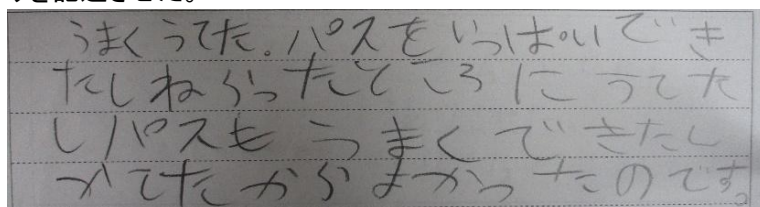 を記述させた。
うまくうてた。パスをいっぱいでき
たしねらったところにうてた
しパスもうまくできたし
かてたからよかったのです。